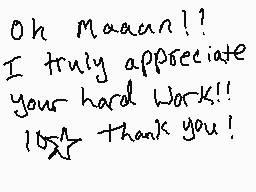 Oh Maaan!!
I truly appreciate
your hard work!!
10☆ thank you!